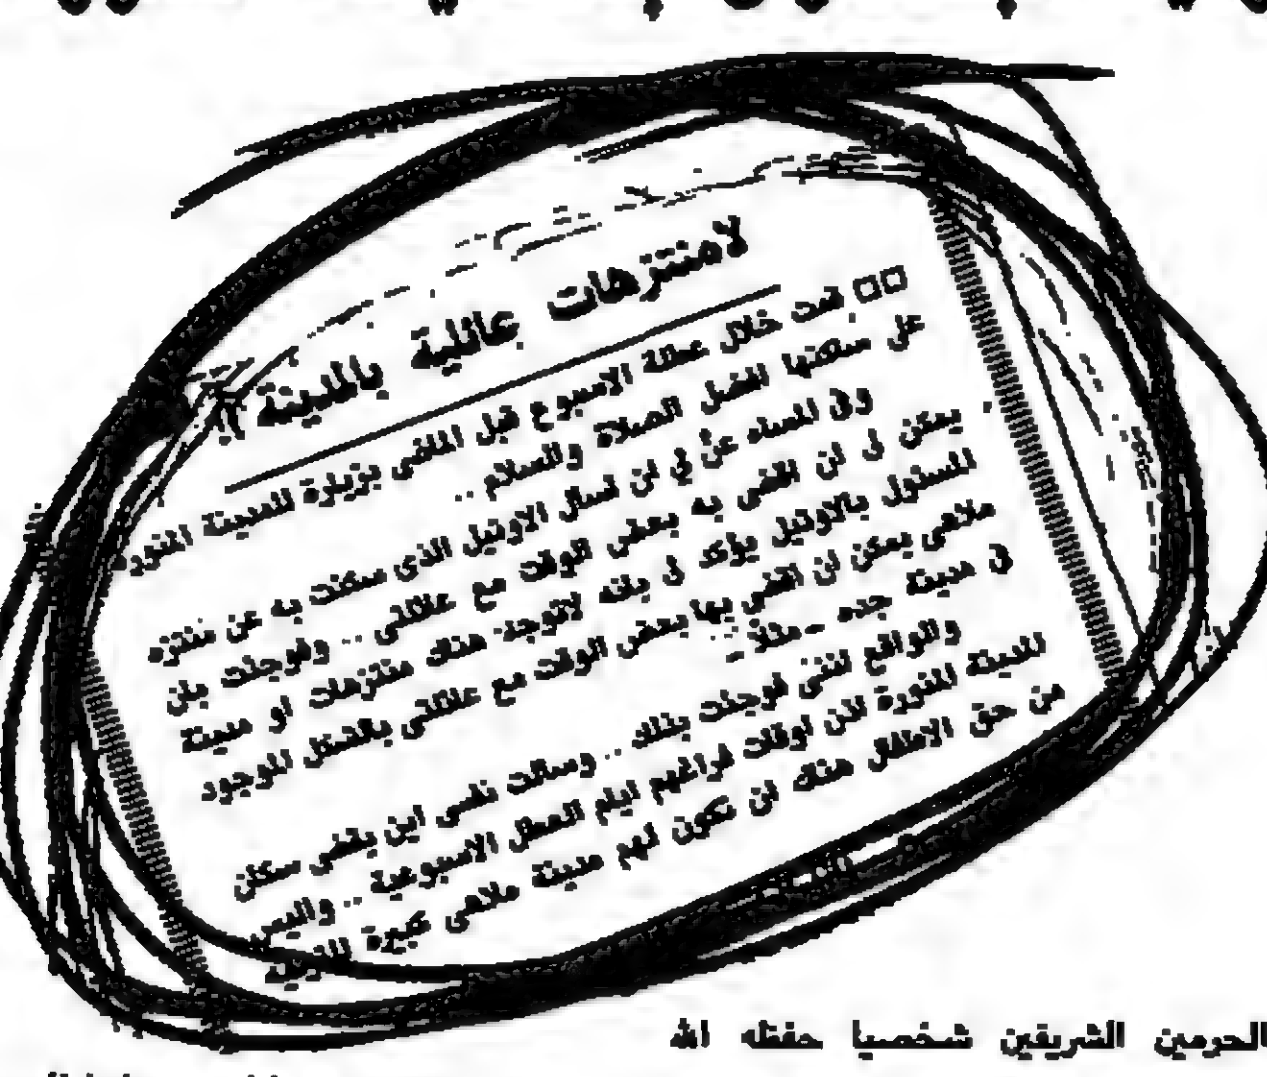 لامنتزهات عائلية بالمدينة !!
□□ قمت خلال عطلة الاسبوع قبل الماضي بزيارة للمدينة المنورة
على ساكنها افضل الصلاة والسلام ..
وفي المساء عنَّ لي ان اسال الاوتيل الذي سكنت به عن منتزه
يمكن لي ان اقضي به بعض الوقت مع عائلتي .. وفوجئت بان
المسئول بالاوتيل يؤكد لي بانه لاتوجد هناك منتزهات او مدينة
ملاهي يمكن ان اقضي بها بعض الوقت مع عائلتي بالشكل الموجود
في مدينة جده - مثلاً -.
والواقع انني فوجئت بذلك .. وسالت نفسي اين يقضي سكان
المدينة المنورة اذن اوقات فراغهم ايام العطل الاسبوعية .. واليس
من حق الاطفال هناك ان تكون لهم مدينة ملاهي كبيرة
الحرمين الشريفين شخصيا حفظه الله